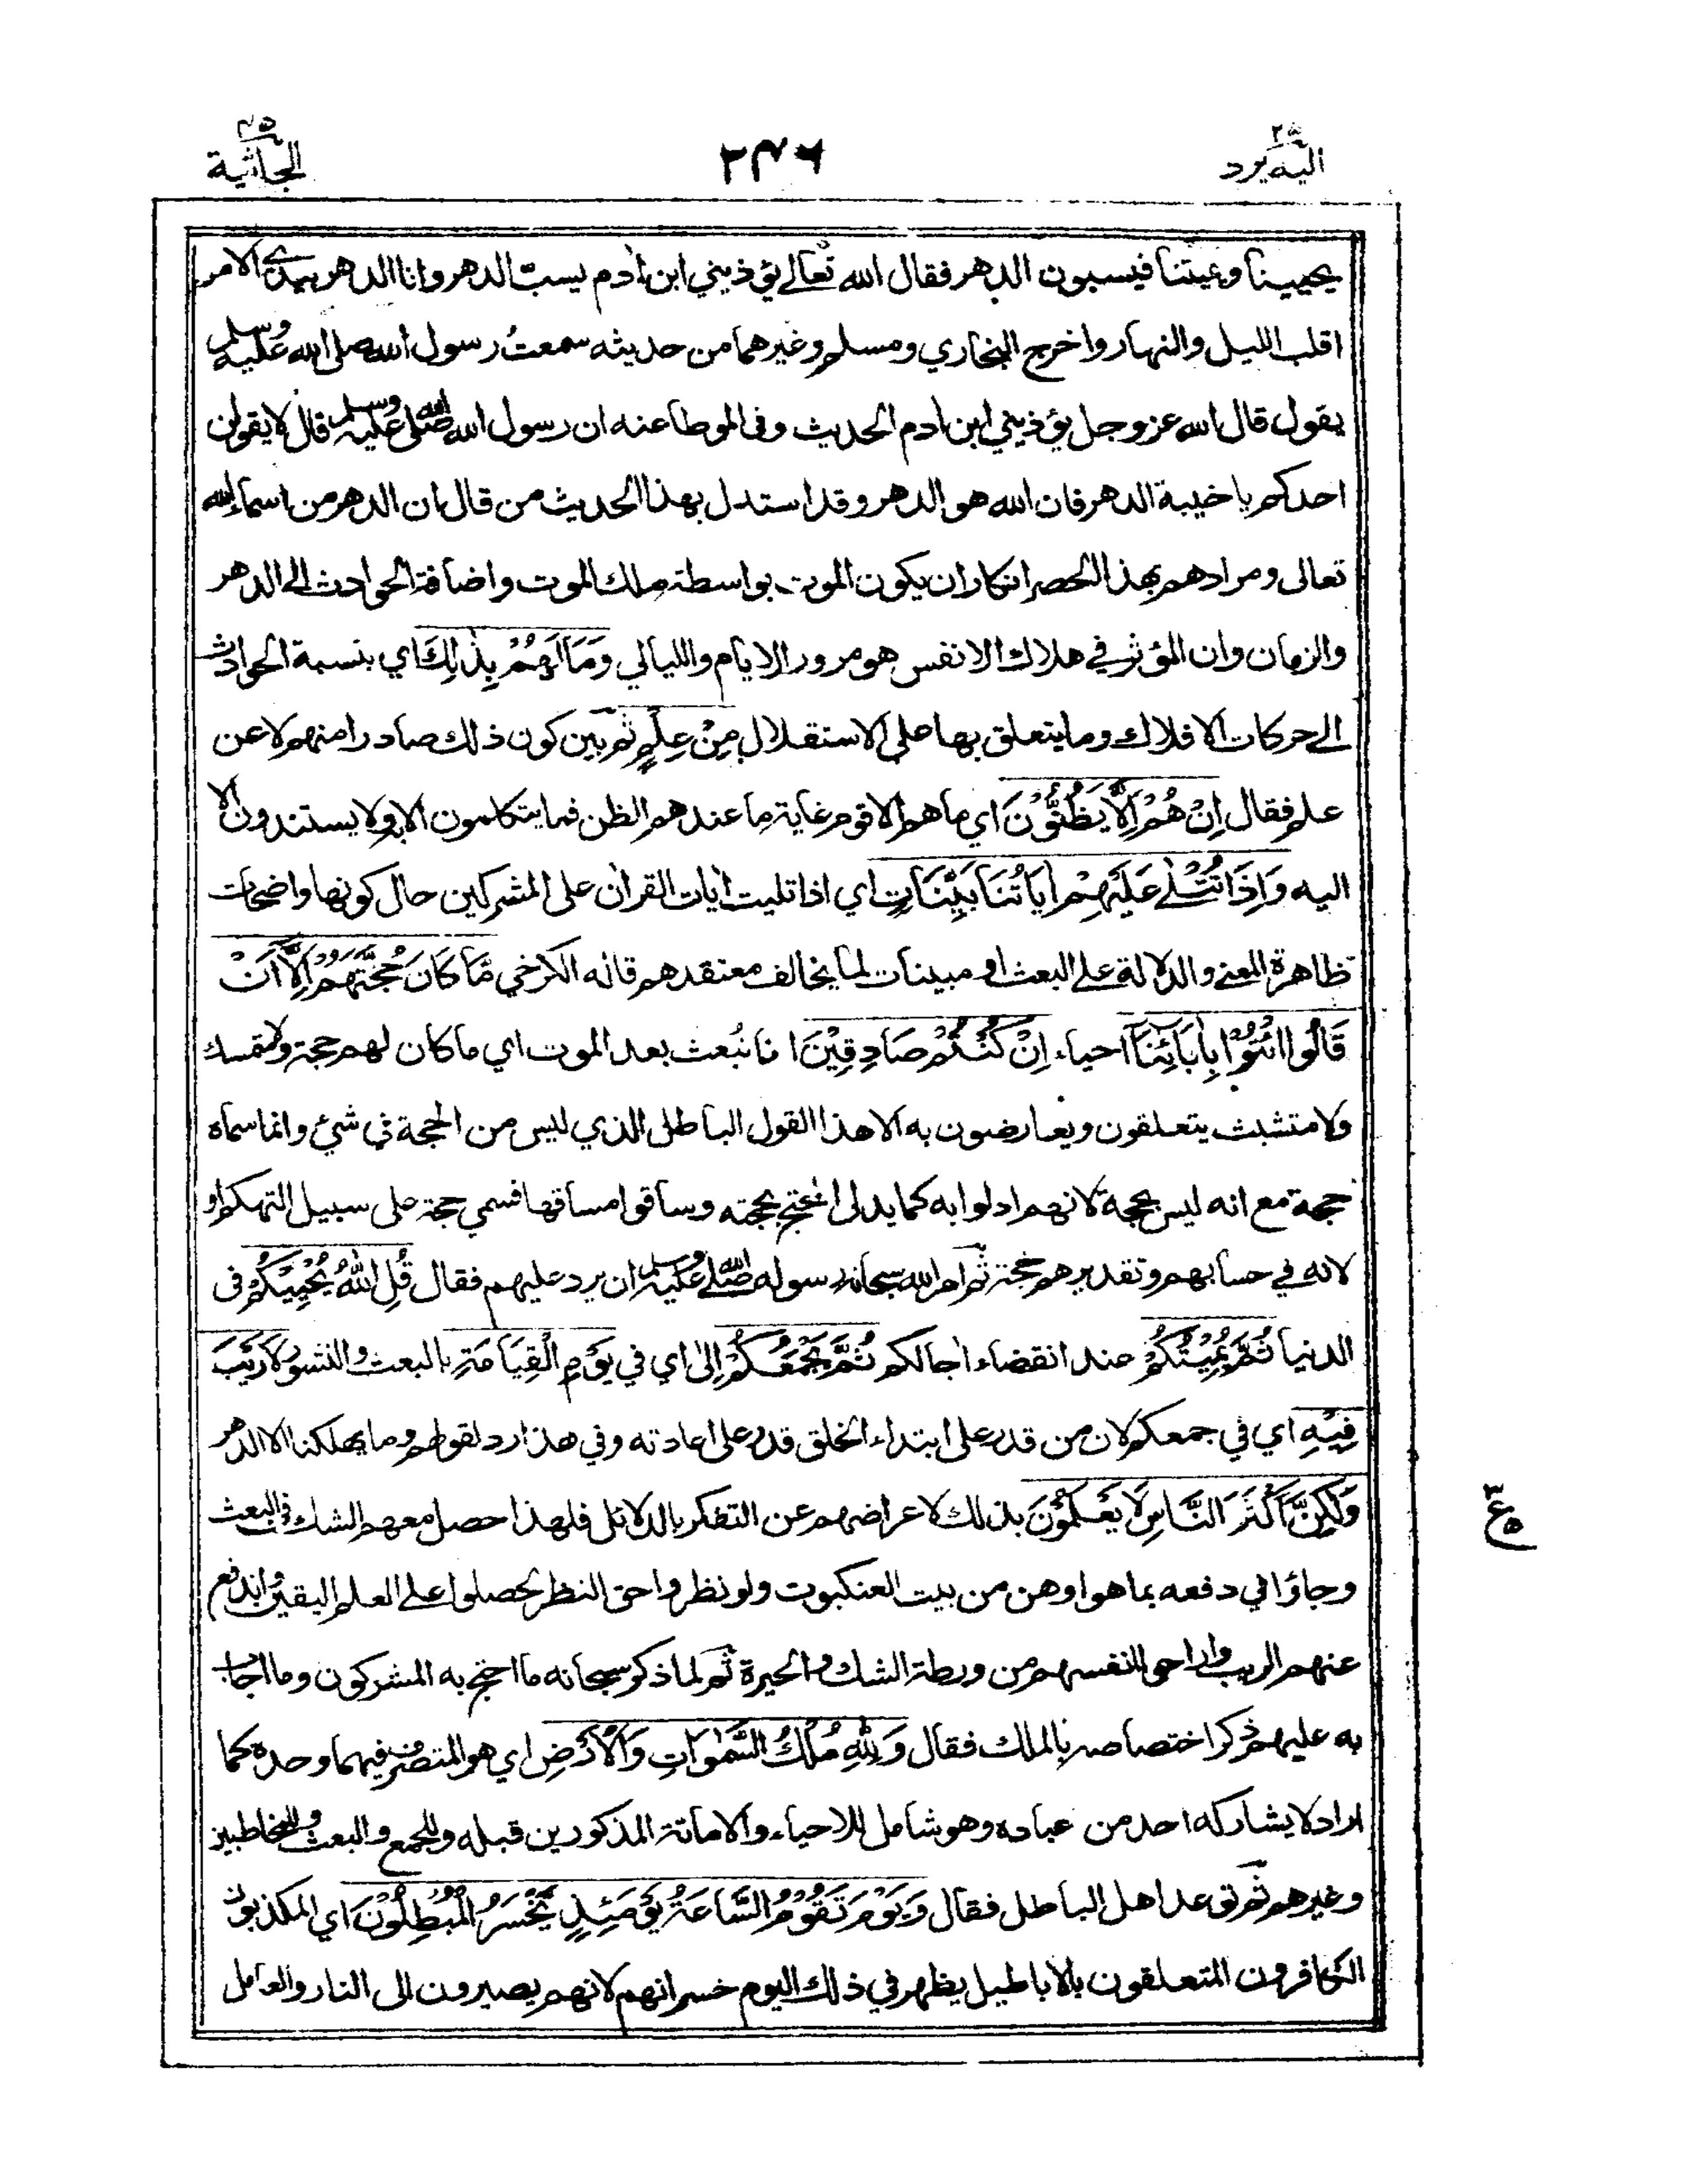 اليه يرد ٢٥
٢٤٦
الجاثية ٤٥
يحيينا ويميتنا فيسبون الدهر فقال الله تعالى يؤذيني ابن اٰدم يسبّ الدهر وانا الدهر بيدي الامر
اقلب الليل والنهار واخرج البخاري ومسلم وغيرهما من حديثه سمعتُ رسول الله صلى الله عليه وسلم
يقول قال الله عز وجل يؤذيني ابن ادم الحديث وفى الموطا عنه ان رسول الله صلى الله عليه وسلم قال لا يقولن
احدكم يا خيبة الدهر فان الله هو الدهر وقد استدل بهذا الحديث من قال ان الدهر من اسماء الله
تعالى ومرادهم بهذا الحصر انكار ان يكون الموت بواسطة ملك الموت واضافة الحوادث الى الدهر
والزمان وان المؤثر في هلاك الانفس هو مرور الايام والليالي وَمَا لَهُمْ بِذٰلِكَ اي بنسبة الحوادث
الى حركات الافلاك وما يتعلق بها على الاستقلال مِنْ عِلْمٍ ثم بين كون ذلك صادرا منهم لا عن
علم فقال اِنْ هُمْ اِلَّا يَظُنُّوْنَ اي ما هم الا قوم غاية ما عندهم الظن فما يتكلمون الا به ولا يستندون الا
اليه وَاِذَا تُتْلٰى عَلَيْهِمْ اٰيَاتُنَا بَيِّنَاتٍ اي اذا تليت اٰيات القراٰن على المشركين حال كونها واضحات
ظاهرة المعنى والدلالة على البعث او مبينات لما يخالف معتقدهم قاله الكرخي مَّا كَانَ حُجَّتَهُمْ اِلَّا اَنْ
قَالُوا ائْتُوْا بِاٰبَائِنَا احياء اِنْ كُنْتُمْ صَادِقِيْنَ انا نُبعث بعد الموت اي ما كان لهم حجة ولا متمسك
ولا متشبث يتعلقون ويعارضون به الا هذا القول الباطل الذي ليس من الحجة في شئ وانما سماه
حجة مع انه ليس بحجة لانهم ادلوا به كما يدلى المحتج بحجته وساقوا مساقها فسمي حجة على سبيل التهكم او
لانه في حسابهم وتقديرهم حجة ثم امر الله سبحانه رسوله صلى الله عليه وسلم ان يرد عليهم فقال قُلِ اللّٰهُ يُحْيِيْكُمْ فى
الدنيا ثُمَّ يُمِيْتُكُمْ عند انقضاء اٰجالكم ثُمَّ يَجْمَعُكُمْ اِلٰى اي في يَوْمِ الْقِيَامَةِ بالبعث والنشور لَا رَيْبَ
فِيْهِ اي في جمعكم لان من قدر على ابتداء الخلق قدر على اعادته وفي هذا رد لقولهم وما يهلكنا الا الدهر
وَلٰكِنَّ اَكْثَرَ النَّاسِ لَا يَعْلَمُوْنَ بذلك لاعراضهم عن التفكر بالدلائل فلهذا حصل معهم الشك في البعث
وجاؤا في دفعه بما هو اوهن من بيت العنكبوت ولو نظروا حق النظر لحصلوا على العلم اليقين واندفع
عنهم الريب واراحوا انفسهم من ورطة الشك والحيرة ثم لما ذكر سبحانه ما احتج به المشركون وما اجاب
به عليهم ذكر اختصاصه بالملك فقال وَلِلّٰهِ مُلْكُ السَّمٰوَاتِ وَالْاَرْضِ اي هو المتصرف فيهما وحده كما
اراد لا يشاركه احد من عباده وهو شامل للاحياء والاماتة المذكورين قبله وللجمع والبعث وللمخاطبين
وغيرهم ثم توعد اهل الباطل فقال وَيَوْمَ تَقُوْمُ السَّاعَةُ يَوْمَئِذٍ يَّخْسَرُ الْمُبْطِلُوْنَ اي المكذبون
الكافرون المتعلقون بالاباطيل يظهر في ذلك اليوم خسرانهم لانهم يصيرون الى النار والعامل